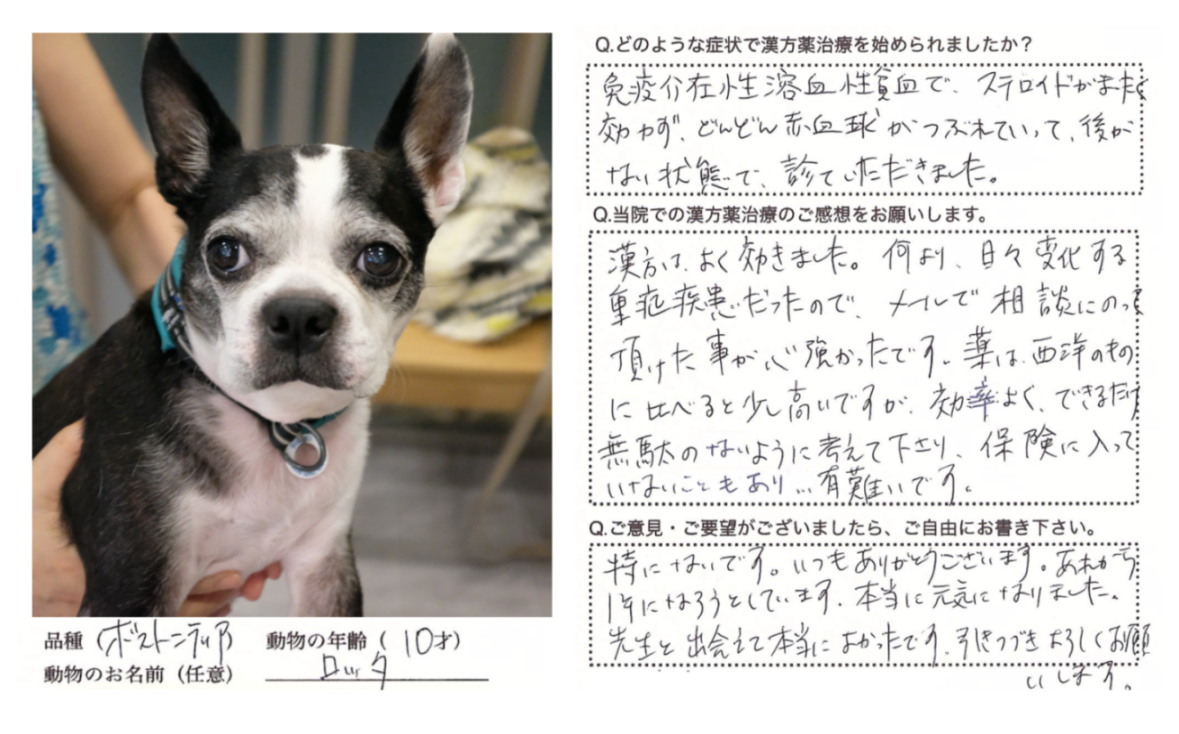 Q.どのような症状で漢方薬治療を始められましたか?
免疫介在性溶血性貧血で、ステロイドがまったく
効かず、どんどん赤血球がつぶれていって、後が
ない状態で、診ていただきました。
Q.当院での漢方薬治療のご感想をお願いします。
漢方は、よく効きました。何より、日々変化する
重症疾患だったので、メールで相談にのって
頂けた事が心強かったです。薬は、西洋のもの
に比べると少し高いですが、効率よく、できるだけ
無駄のないように考えて下さり、保険に入って
いないこともあり…有難いです。
Q.ご意見・ご要望がございましたら、ご自由にお書き下さい。
特にないです。いつもありがとうございます。あれから
1年になろうとしています。本当に元気になりました。
先生と出会えて本当によかったです。引きつづきよろしくお願
いします。
品種(ボストンテリア) 動物の年齢(10才)
動物のお名前(任意) ロック